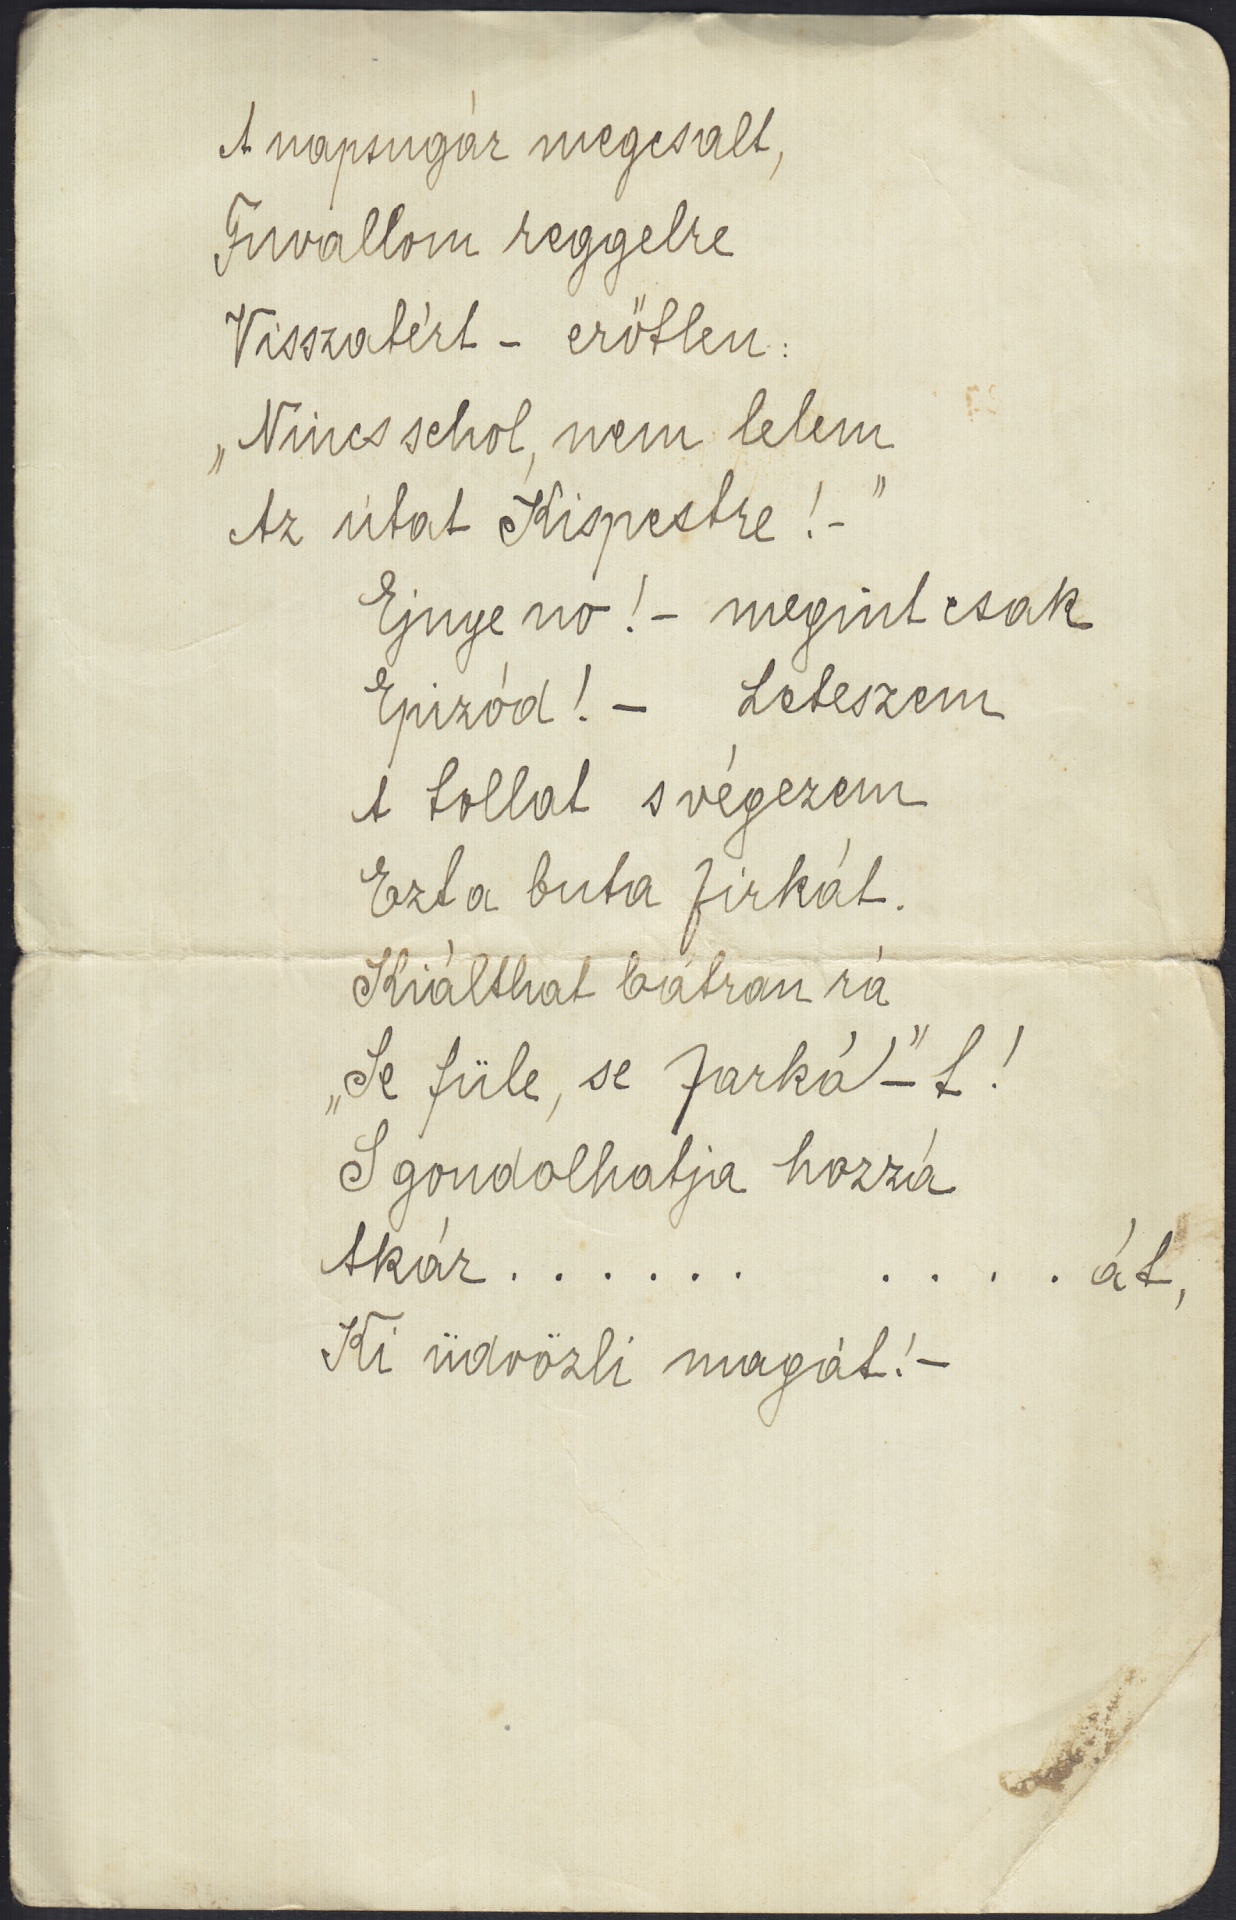 A napsugár megcsalt,
Fuvallom reggelre
Visszatért - erőtlen:
„Nincs sehol, nem lelem
Az útat Kispestre! -"
Ejnye no! - megint csak
Epizód! - Leteszem
A tollat s végezem
Ezt a buta firkát.
Kiálthat bátran rá
„Se füle, se farká"-t!
S gondolhatja hozzá
Akár . . . . . . . . . . át,
Ki üdvözli magát! -